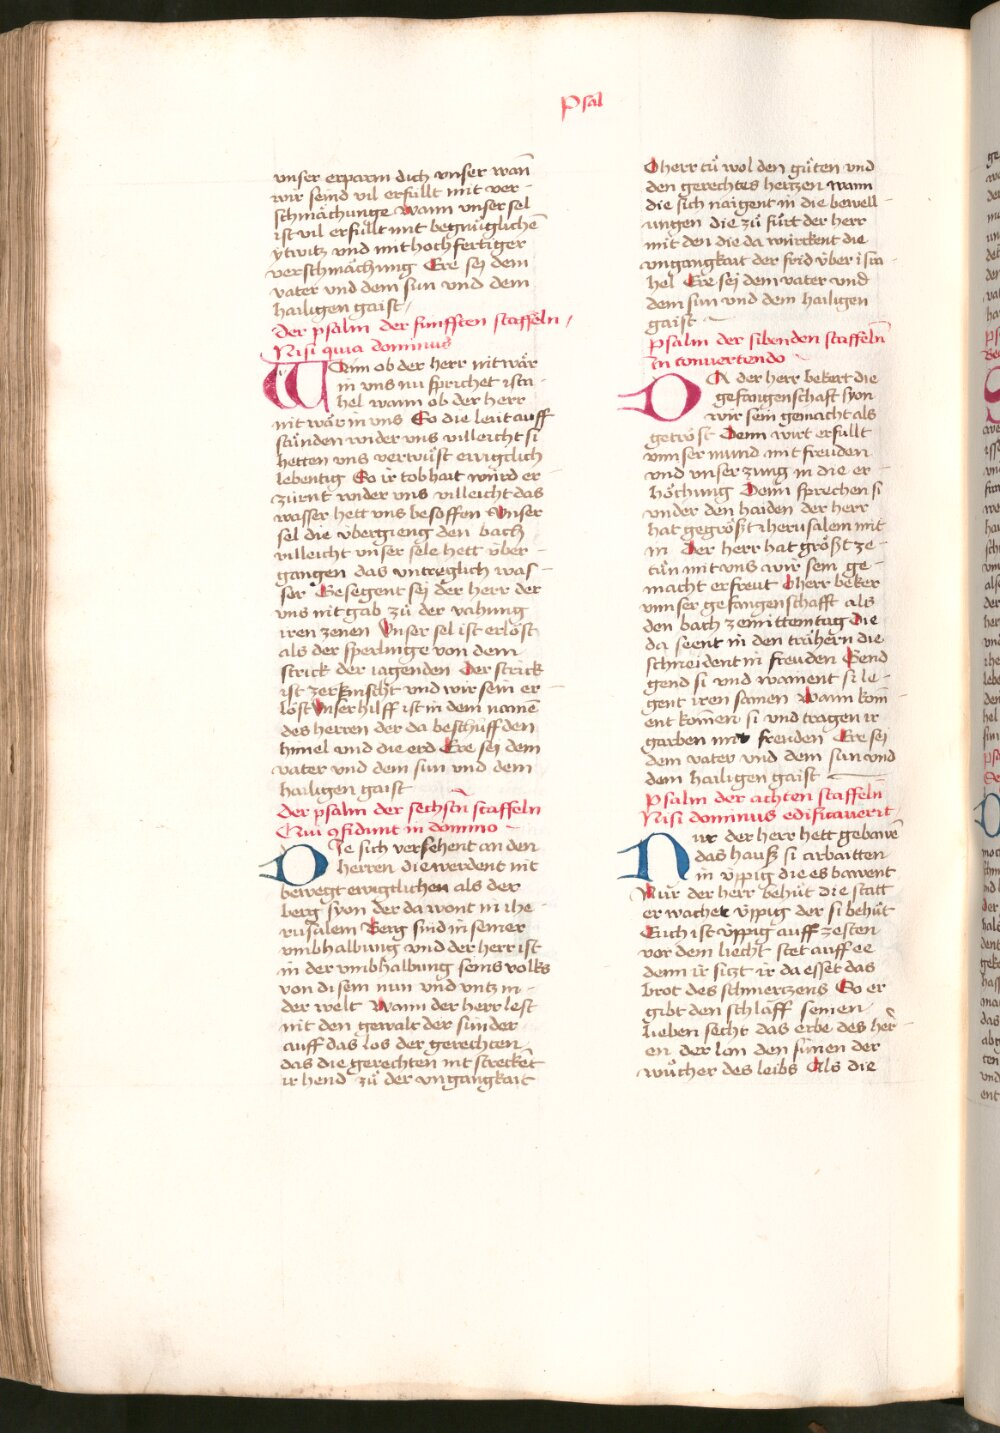 Psal
vnser erparm dich vnser wañ
wir seind vil erfüllt mit ver-
schmächunge wann vnser sel
ist vil erfüllt mit begnüglicheñ
ytwitz vnd mit hochfertiger
verschmächung Ere sej dem
vater vnd dem sun vnd dem
hailigen gaist
Der psalm der funfften staffeln
Nisi quia dominus
Wann ob der herr nit wär
in vns nu sprichet isra-
hel wann ob der herr
nit wär in vns So die leüt auff
stůnden wider vns villeicht si
hetten vns verwüst ewigclich
lebentig So ir tobhait würd er
zürnt wider vns villeicht das
wasser hett vns besoffen Vnser
sel die vbergieng den bach
villeicht vnser sele hett vber-
gangen das vntreglich was-
ser Gesegent sej der herr der
vns nit gab zů der vahung
iren zenen Vnser sel ist erlöst
als der sperlinge von dem
strick der iagenden Der strick
ist zerknischt vnd wir sein er-
löst Vnser hilff ist in dem namẽ
des herren der da beschůff den
himel vnd die erd Ere sej dem
vater vnd dem sun vnd dem
hailigen gaist
Der psalm der sechstñ staffeln
Qui ꝯfidunt in domino
Die sich versehent an den
herren die werdent nit
bewegt ewigclichen als der
berg syon der da wont in ihe-
rusalem Berg sind in seiner
vmbhalbung vnd der herr ist
in der vmbhalbung seins volks
von disem nun vnd vntz in-
der welt Wann der herr lest
nit den gewalt der sünder
auff das los der gerechten
das die gerechten nit streckẽt
ir hend zů der vngangkait
O herr tů wol den gůten vnd
den gerechtes hertzen wann
die sich naigent in die bewell-
ungen die zů fůrt der herr
mit den die da würckent die
vngangkait der frid vber isra-
hel Ere sei dem vater vnd
dem sun vnd dem hailigen
gaist
Psalm der sibenden staffelñ
In convertendo
Da der herr bekert die
gefangenschaft syon
wir sein gemacht als
getröst Denn wirt erfüllt
vnnser mund mit freuden
vnd vnser zung in die er-
höchung Denn sprechen si
vnder den haiden der herr
hat gegrößt iherusalem mit
in Der herr hat größt ze-
tůn mit vns wir sein ge-
macht erfreut O herr beker
vnnser gefangenschafft als
den bach zemittemtag Die
da seent in den trähern die
schneident in freuden Gend
gend si vnd wament si le-
gent iren samen Wann kom-
ent komen si vnd tragen ir
garben mit freuden Ere sej
dem vater vnd dem sun vnd
dem hailigen gaist
Psalm der achten staffelñ
Nisi dominus edificauerit
Nur der herr hett gebawẽ
das hauß si arbaitten
in vppig die es bawent
Nur der herr behüt die statt
er wachet vppig der si behüt
Euch ist vppig auff zesten
vor dem liecht stet auff ee
denn ir sizt ir da esset das
brot des schmertzens So er
gibt den schlaff seinen
lieben secht das erbe des her̃-
en der lon den sünen der
wůcher des leibs Als die